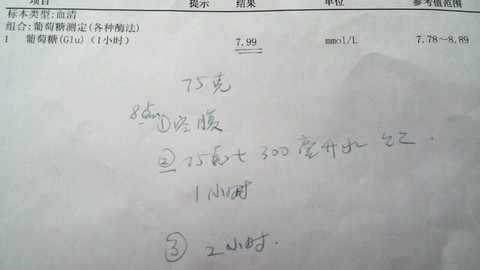 项目 提示 结果 单位 参考值范围
标本类型:血清
组合:葡萄糖测定(各种酶法)
1 葡萄糖(Glu)(1小时) 7.99 mmol/L 7.78~8.89
75克
8点 ①空腹
②75克+300毫升水
1小时
③ 2小时.